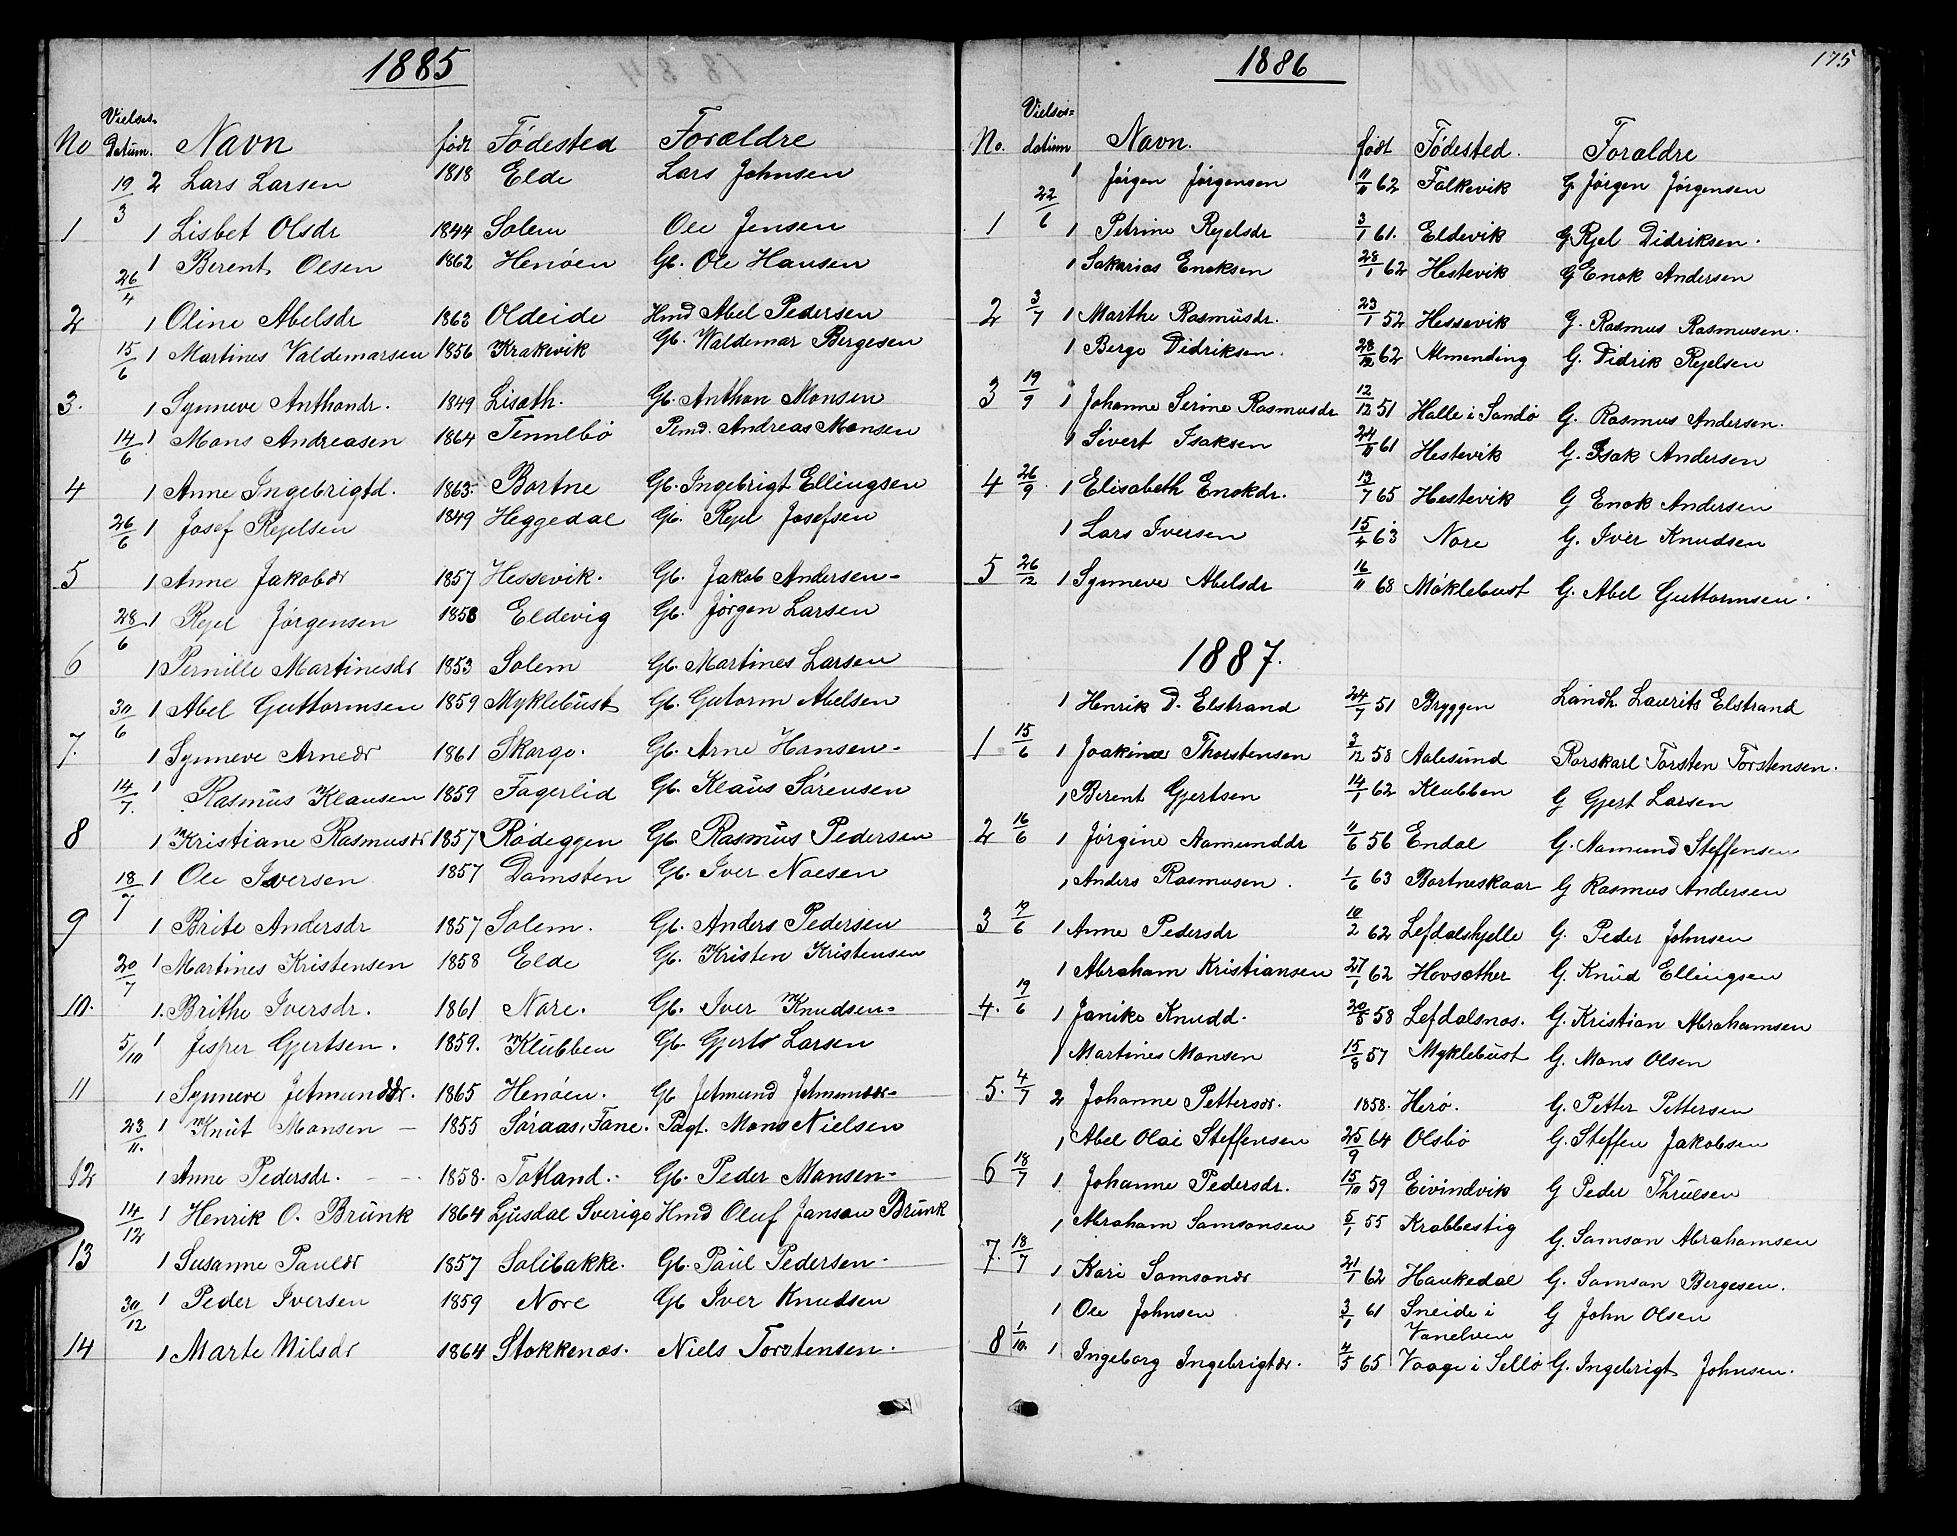 1885
No Vielses-Datum. Navn født Fødested Forældre
19/3 2 Lars Larsen 1818 Elde Lars Johnsen
1 1 Lisbet Olsdr 1844 Solem Ole Jensen
26/4 1 Berent Olsen 1862 Henøen Gb. Ole Hansen
2 1 Oline Abelsdr 1863 Oldeide Hmd Abel Pedersen
15/6 1 Martines Valdemarsen 1856 Krakevik Gb. Waldemar Børgesen
3. 1 Synneve Anthondr. 1849 Lisæth. Gb. Anthon Monsen
14/6 1 Mons Andreasen 1864 Tennebø Plmd. Andreas Monsen
4 1 Anne Ingebrigtd. 1863. Bortne Gb. Ingebrigt Ellingsen
26/6 1 Josef Rejelsen 1849 Heggedal Gb. Rejel Josefsen
5 1 Anne Jakobdr 1857 Hessevik. Gb. Jakob Andersen-
28/6 1 Rejel Jørgensen 1858 Eldevig Gb. Jørgen Larsen
6 1 Pernille Martinesdr 1853 Solem Gb. Martines Larsen
30/6 1 Abel Guttormsen 1859 Myklebust Gb. Gutorm Abelsen
7. 1 Synneve Arnedr 1861 Skorge. Gb. Arne Hansen-
14/7. 1 Rasmus Klausen 1859 Fagerlid Gb. Klaus Sørensen
8 1 Kristiane Rasmusdr 1857 Rødeggen Gb. Rasmus Pedersen
18/7 1 Ole Iversen 1857 Domsten Gb. Iver Noesen
9 1 Brite Andersdr 1857 Solem. Gb. Anders Pedersen
20/7 1 Martines Kristensen 1858 Elde Gb. Kristen Kristensen
10. 1. Brithe Iversdr. 1861 Nore. Gb. Iver Knudsen-
5/10 1 Jesper Gjertsen. 1859. Klubben Gb. Gjert Larsen
11 1 Synneve Jetmunddr. 1865 Henøen. Gb Jetmund Jetmundsr-
23/11. 1 Knut Monsen - 1855 Søraas, Fane. Pagt. Mons Nielsen
12 1 Anne Pedersdr. - - 1858. Totland. Gb. Peder Monsen-
14/12 1 Henrik O. Brunk 1864 Ljusdal Sverige Hmd Oluf Janson Brunk
13 1 Susanne Pauldr 1857 Solibakke. Gb. Paul Pedersen-
30/12 1 Peder Iversen 1859 Nore Gb Iver Knudsen
14 1 Marte Nilsdr 1864 Stokkenes. Niels Torstensen.
1886
175
No. Vielses-datum Navn. født Fødested. Forældre
22/6 1 Jørgen Jørgensen 11/11 62 Falkevik G Jørgen Jørgensen
1 1 Petrine Rejelsdr 3/1 61. Eldevik G Rjel Didriksen.
1 Sakarias Enoksen 28/1 62 Hestevik G Enok Andersen
2 3/7 1 Marthe Rasmusdr. 23/1 52 Hessevik G. Rasmus Rasmusen.
1 Berge Didriksen. 28/12 62 Almending G. Didrik Rejelsen
3 19/9 1 Johanne Serine Rasmusdr 12/12 51 Halle i Sandø G. Rasmus Andersen.
1 Sivert Isaksen 24/11 61 Hestevik G. Isak Andersen
4 26/9 1 Elisabeth Enokdr. 13/7 65 Hestevik G Enok Andersen
1 Lars Iversen 15/4 63 Nore G. Iver Knudsen
5 26/12 1 Synneve Abelsdr 16/11 68 Møklebust G. Abel Guttormsen.
1887.
1 Henrik D. Elstrand 24/7 51 Bryggen Landh. Laurits Elstrand
1 15/6 1 Joakine Thorstensen 3/12 58 Aalesund Rorskarl Torsten Torstensen.
1 Berent Gjertsen 14/1 62 Klubben G Gjert Larsen
2 16/6 1 Jørgine Aamunddr 11/6 56 Endal G. Aamund Steffensen
1 Anders Rasmusen. 1/6 63 Bortneskaar G Rasmus Andersen
3 19/6 1 Anne Pedersdr 10/2 62 Lefdalshjelle G. Peder Johnsen
1 Abraham Kristiansen 27/1 62 Hovsæther G. Knud Ellingsen
4. 19/6 1 Janike Knudd. 20/8 58 Lefdalsnæs. G. Kristian Abrahamsen
1 Martines Monsen 15/8 57 Myklebust G. Mons Olsen
5. 4/7 2 Johanne Pettersdr. 1858. Herø. G. Petter Pettersen
1 Abel Olai Steffensen 25/9 64 Olsbø G. Steffen Jakobsen
6 18/7 1 Johanne Pedersdr. 15/10 59 Eivindvik G Peder Thruelsen
1 Abraham Samsonsen 5/1 55 Krabbestig G. Samson Abrahamsen
7. 18/7 1 Kari Samsondr 21/1 62 Haukedal G. Samson Børgesen.
1 Ole Johnsen 3/1 61 Sneide i Vanelven G John Olsen
8 1/10. 1 Ingeborg Ingebrigtdr. 4/5 65 Vaage i Sellø G. Ingebrigt Johnsen.